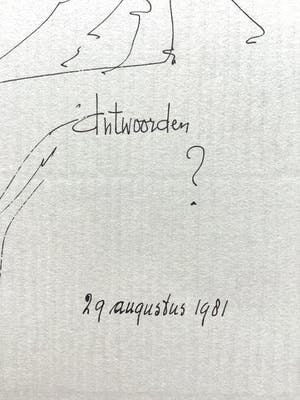 Antwoorden
?
29 augustus 1981